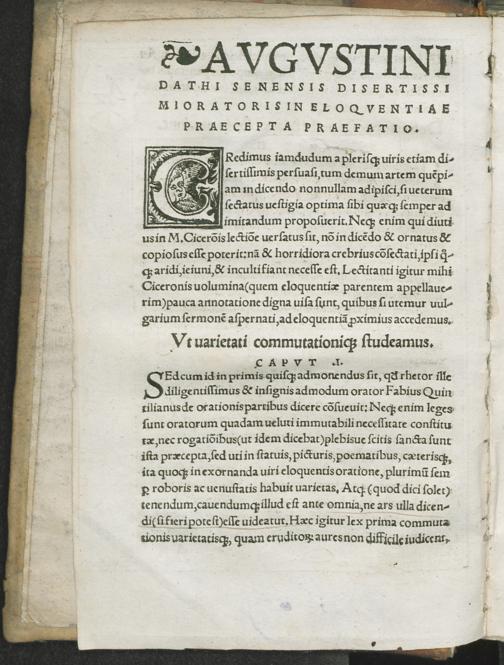 AVGVSTINI
DATHI SENENSIS DISERTISSI
MI ORATORIS IN ELOQVENTIAE
PRAECEPTA PRAEFATIO.
CRedimus iamdudum a plerisq; uiris etiam di-
sertissimis persuasi, tum demum artem quẽpi-
am in dicendo nonnullam adipisci, si ueterum
sectatus uestigia optima sibi quæq; semper ad
imitandum proposuerit. Neq; enim qui diuti
us in M. Cicerõis lectiõe uersatus sit, nõ in dicẽdo & ornatus &
copiosus esse poterit: nã & horridiora crebrius cõsectati, ipsi q̃-
q; aridi, ieiuni, & inculti fiant necesse est. Lectitanti igitur mihi
Ciceronis uolumina (quem eloquentiæ parentem appellaue-
rim) pauca annotatione digna uisa sunt, quibus si utemur uul-
garium sermonẽ aspernati, ad eloquentiã ꝓximius accedemus.
Vt uarietati commutationiq; studeamus.
CAPVT .I.
SEd cum id in primis quisq; admonendus sit, qđ rhetor ille
diligentissimus & insignis admodum orator Fabius Quin
tilianus de orationis partibus dicere cõsueuit: Neq; enim leges
sunt oratorum quadam ueluti immutabili necessitate constitu
tæ, nec rogatiõibus (ut idem dicebat) plebisue scitis sancta sunt
ista præcepta, sed uti in statuis, picturis, poematibus, cæterisq;,
ita quoq; in exornanda uiri eloquentis oratione, plurimũ sem
ꝑ roboris ac uenustatis habuit uarietas. Atq; (quod dici solet)
tenendum, cauendumq; illud est ante omnia, ne ars ulla dicen-
di (si fieri potest) esse uideatur. Hæc igitur lex prima commuta
tionis uarietatisq;, quam eruditoꝝ aures non difficile iudicent,